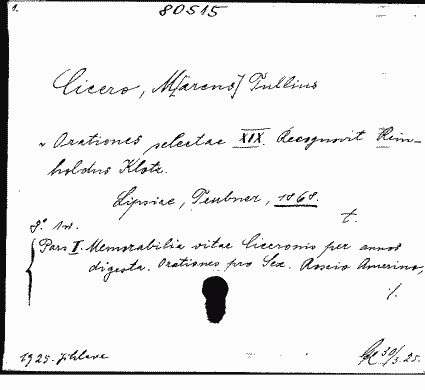 1.
80515
Cicero, M[arcus] Tullius
Orationes selectae XIX. Recognovit Rein-
holdus Klotz.
Lipsiae, Teubner, 1868.
t.
8° Sn.
Pars I. Memorabilia vitae Ciceronis per annos
digesta. Orationes pro Sex. Roscio Amerino,
./.
1925.
30/3.25.